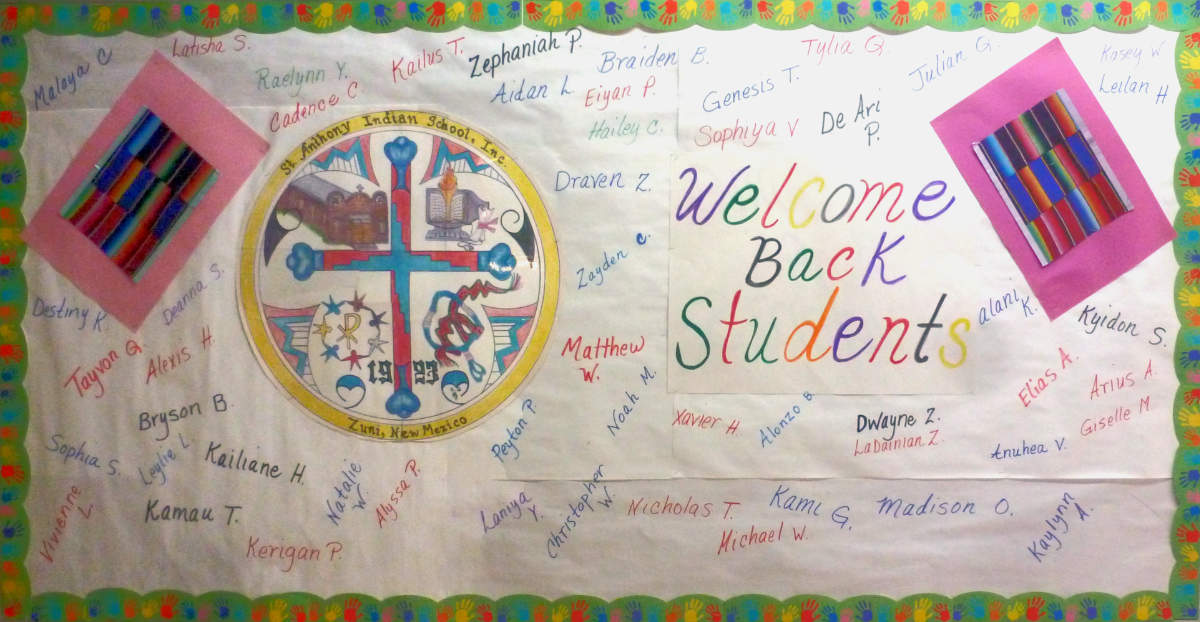 Malaya C
Latisha S.
Raelynn Y.
Cadence C
Kailus T.
Zephaniah P.
Aidan L
Braiden B.
Eiyan P.
Hailey C.
Genesis T.
Sophiya V
Tylia Q
De Ari
P.
Julian G.
Kasey W
Leilan H
St. Anthony Indian School, Inc.
1923
Zuni, New Mexico
Draven Z.
Zayden C.
Welcome
Back
Students
Alani
K.
Kyidon S.
Destiny K.
Deanna S.
Tayvon Q
Alexis H.
Matthew
W.
Noah M.
Elias A.
Arius A.
Giselle M
Bryson B.
Peyton P.
Xavier H.
Alonzo B.
Dwayne Z.
LaDainian Z.
Anuhea V.
Sophia S.
Leylie L
Kailiane H.
Natalie
W.
Alyssa P.
Vivienne
L
Kamau T.
Kerigan P.
Laniya
Y.
Christopher
W.
Nicholas T.
Michael W.
Kami G.
Madison O.
Kaylynn
A.